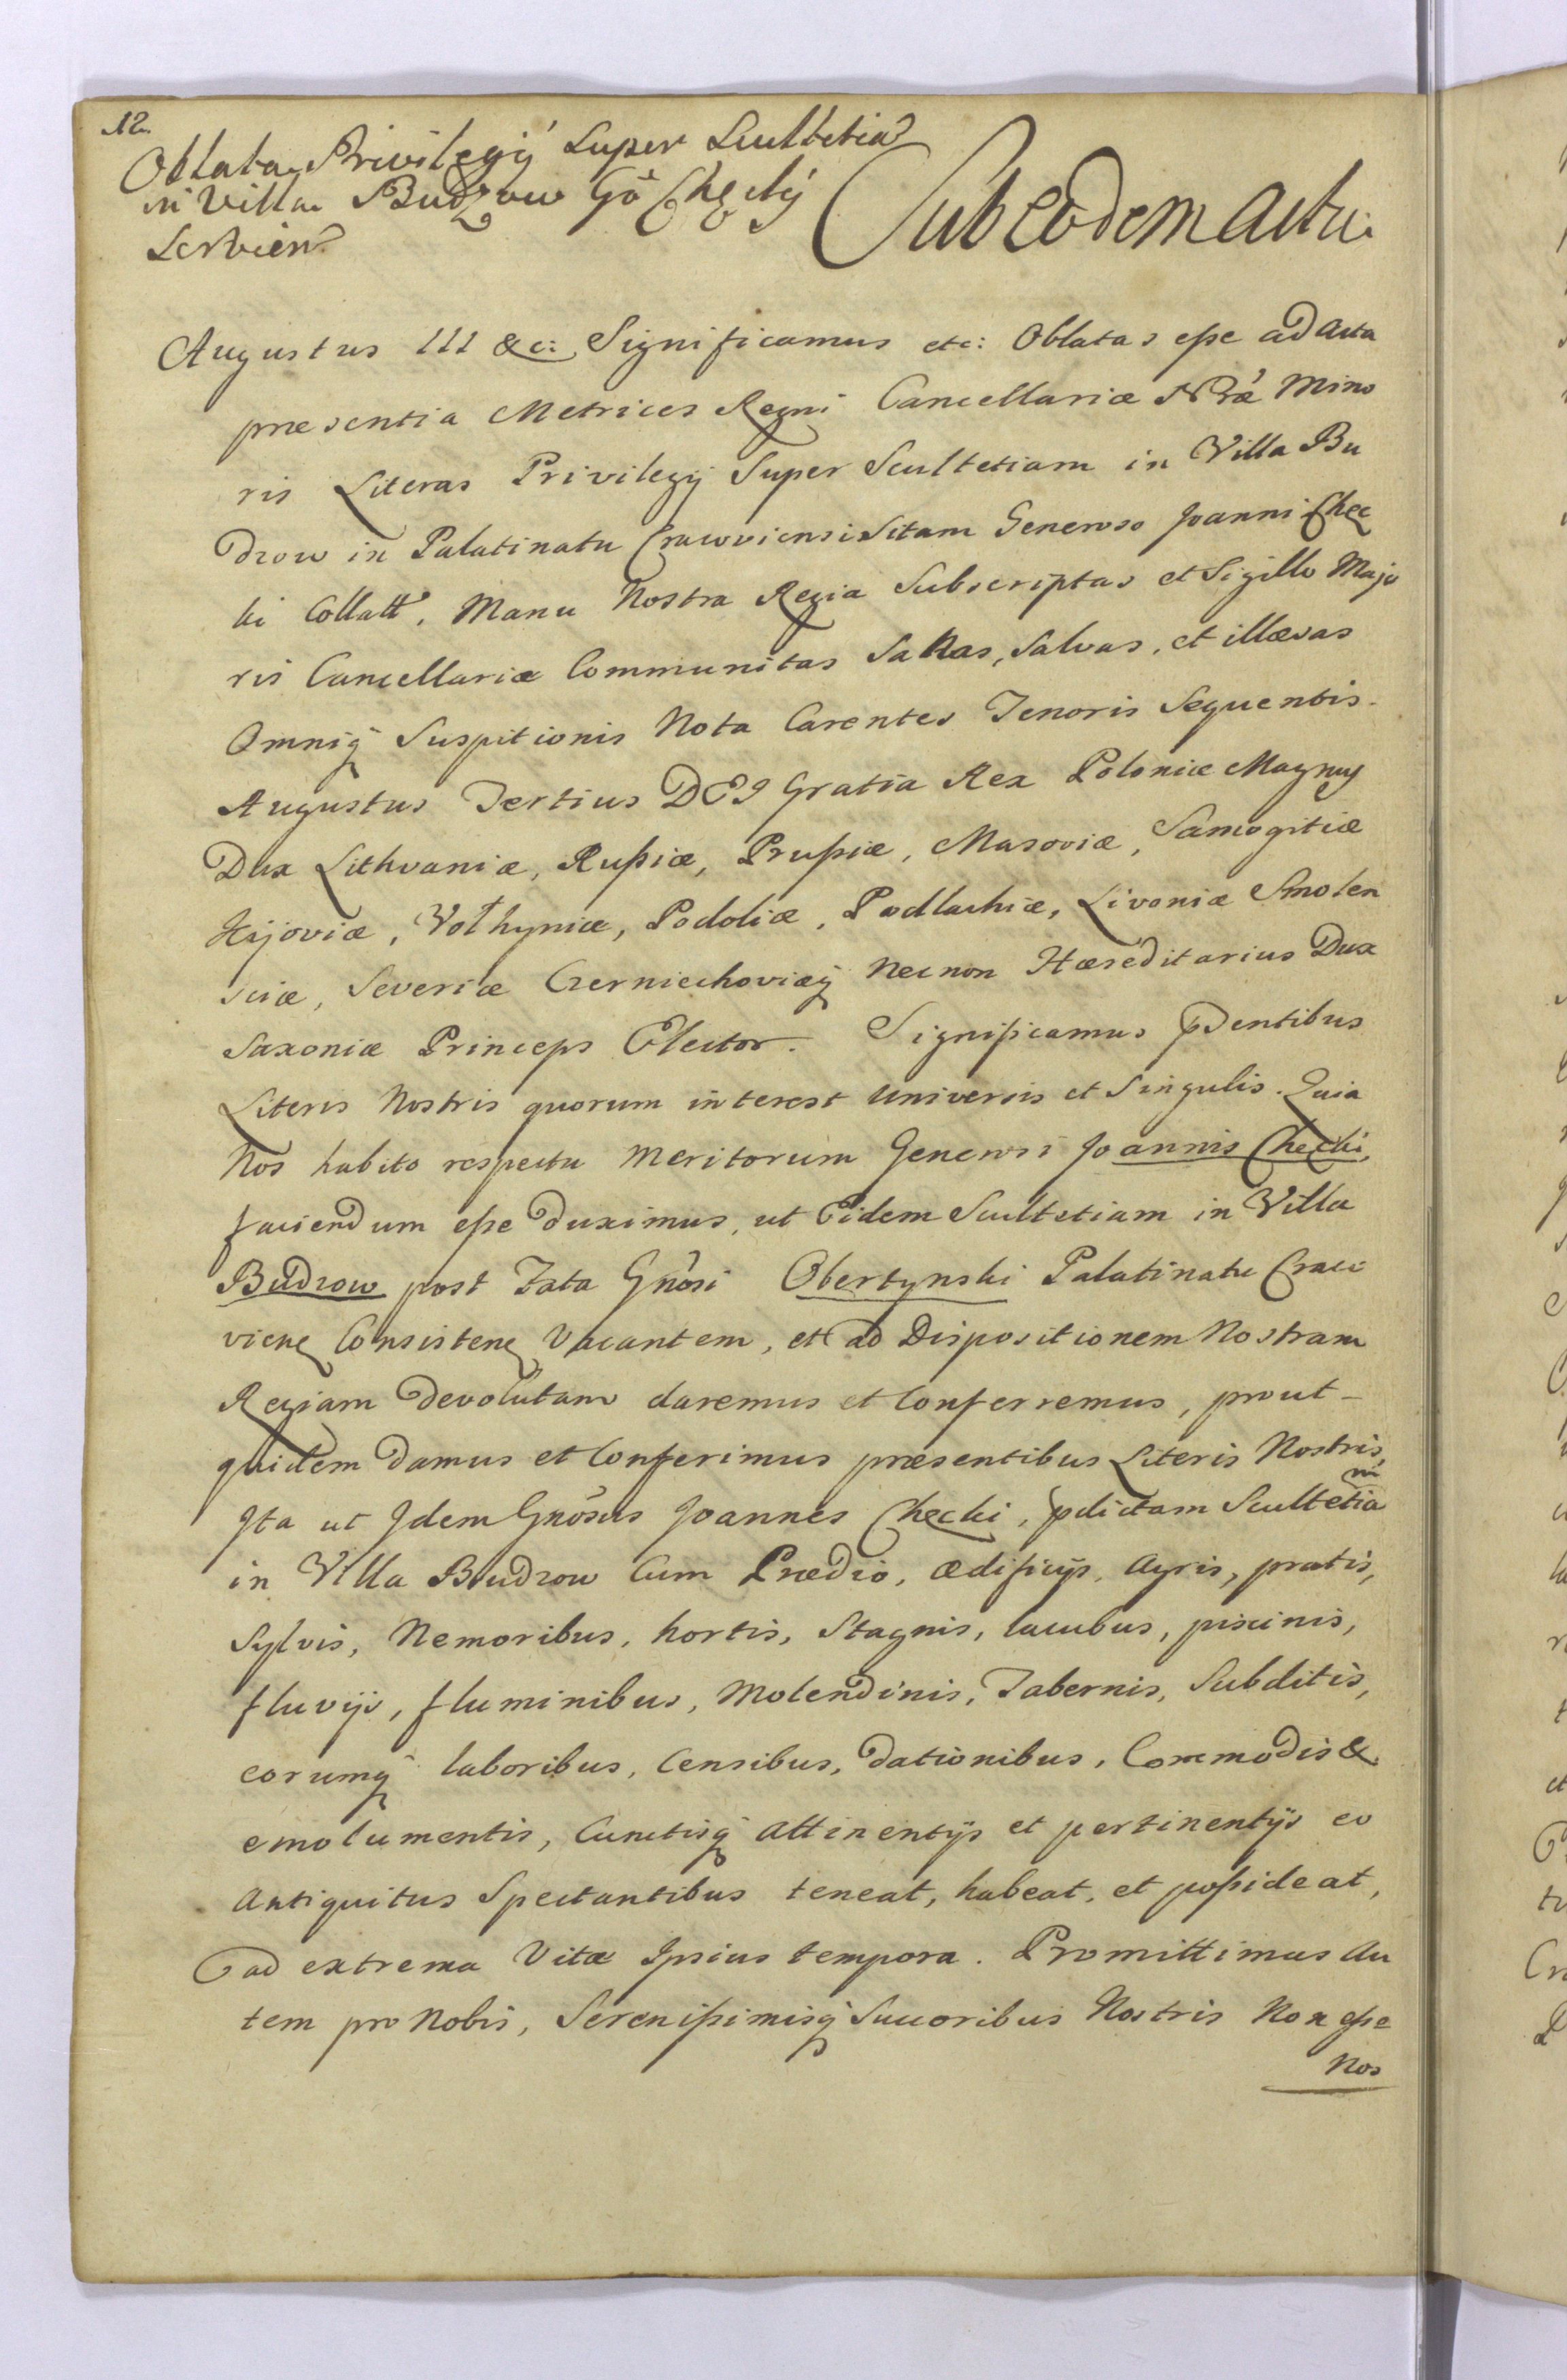 12.
Oblata Privilegij Super Scultetia
in Villa Budzow Gō Chęcky
Servien
Sub eodem actu:
Augustus III &c: Significamus etc: Oblatas esse ad Acta
præsentia Metrices Regni Cancellariæ Nræ Mino
ris Literas Privilegij Super Scultetiam in Villa Bu
dzow in Palatinatu Cracoviensi Sitam Generoso Joanni Chęc
ki Collatt, Manu Nostra Regia Subscriptas et Sigillo Majo
ris Cancellariæ Communitas Sanas, Salvas, et illæsas
Omniq Suspitionis Nota Carentes Tenoris Sequentis.
Augustus Tertius DEI Gratia Rex Poloniæ Magnus
Dux Lithvaniæ, Russiæ, Prussiæ, Masoviæ, Samogitiæ
Kijoviæ, Volhyniæ, Podoliæ, Podlachiæ, Livoniæ Smolen
sciæ, Severiæ Czerniechoviæq Necnon Hæreditarius Dux
Saxoniæ Princeps Elector. Significamus pdentibus
Literis Nostris quorum interest Universis et Singulis. Quia
Nos habito respectu Meritorum Generosi Joannis Chęcki,
faciendum esse duximus, ut Eidem Scultetiam in Villa
Budzow post Fata Gnosi Obertynski Palatinatu Craco
vien Consisten Vacantem, et ad Dispositionem Nostram
Regiam Devolutam daremus et Conferremus, prout-
quidem Damus et Conferimus præsentibus Literis Nostris,
Ita ut Idem Gnosus Joannes Chęcki, pdictam Scultetiam
in Villa Budzow Cum Prædio, ædificijs, Agris, pratis,
Sylvis, Nemoribus, hortis, Stagnis, lacubus, piscinis,
fluvijs, fluminibus, Molendinis, Tabernis, Subditis,
eorumq laboribus, Censibus, Dationibus, Commodis &
emolumentis, Cunctisq attinentijs et pertinentijs eo
Antiquitus Spectantibus teneat, habeat, et possideat,
ad extrema Vitæ Ipsius tempora. Promittimus Au
tem pro Nobis, Serenissimisq Succoribus Nostris Non esse
Nos